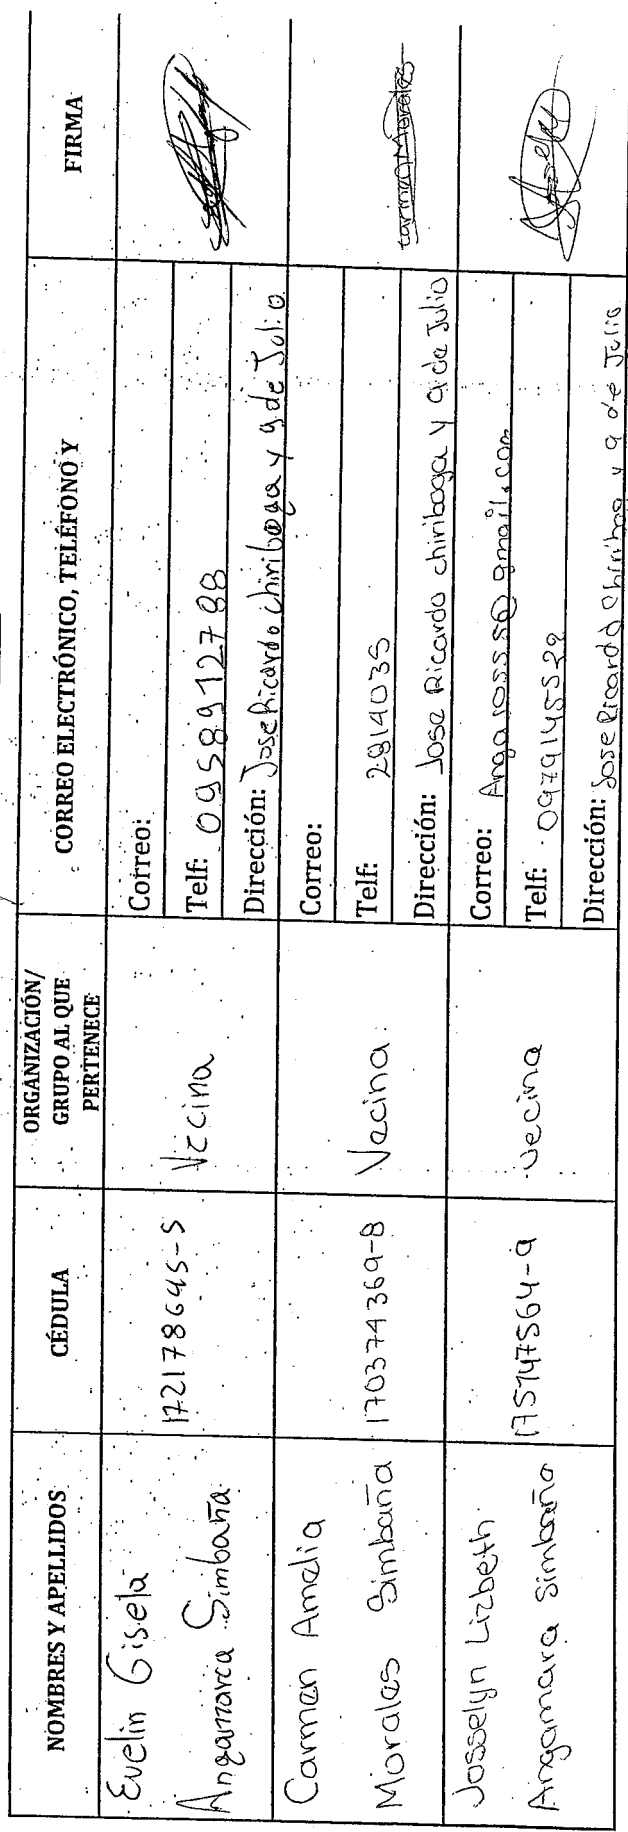 NOMBRES Y APELLIDOS
CÉDULA
ORGANIZACIÓN/
GRUPO AL QUE
PERTENECE
CORREO ELECTRÓNICO, TELÉFONO Y
FIRMA
Evelin Gisela
Angamarca Simbaña
172178645-5
Vecina
Correo:
Telf: 0958912788
Dirección: Jose Ricardo chiriboga y 9 de Julio
Carmen Amelia
Morales Simbaña
170374369-8
Vecina
Correo:
Telf: 2814035
Dirección: Jose Ricardo chiriboga y 9 de Julio
Carmen Morales
Josselyn Lizbeth
Angamarca Simbaña
175147564-9
vecina
Correo:
Telf: 0979145529
Dirección: Jose Ricardo Chiriboga y 9 de Julio